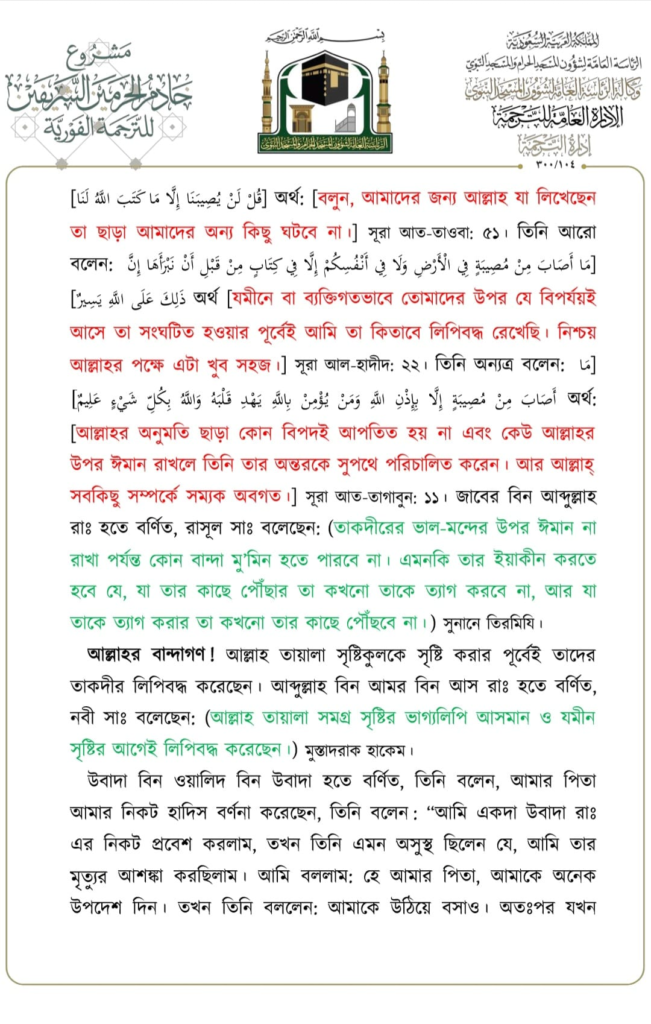 بِسْمِ اللهِ الرَّحْمٰنِ الرَّحِيْمِ
مَشْرُوع
خَادِمُ الْحَرَمَيْنِ الشَّرِيفَيْنِ
لِلتَّرْجَمَةِ الْفَوْرِيَّةِ
المملكة العربية السعودية
الرئاسة العامة لشؤون المسجد الحرام والمسجد النبوي
وكالة الرئاسة العامة لشؤون المسجد النبوي
الإدارة العامة للترجمة
إدارة الترجمة
٣٠٠/١٠٤
[قُلْ لَنْ يُصِيبَنَا إِلَّا مَا كَتَبَ اللَّهُ لَنَا] অর্থ: [বলুন, আমাদের জন্য আল্লাহ যা লিখেছেন
তা ছাড়া আমাদের অন্য কিছু ঘটবে না।] সূরা আত-তাওবা: ৫১। তিনি আরো
বলেন: [مَا أَصَابَ مِنْ مُصِيبَةٍ فِي الْأَرْضِ وَلَا فِي أَنْفُسِكُمْ إِلَّا فِي كِتَابٍ مِنْ قَبْلِ أَنْ نَبْرَأَهَا إِنَّ
ذَلِكَ عَلَى اللَّهِ يَسِيرٌ] অর্থ [যমীনে বা ব্যক্তিগতভাবে তোমাদের উপর যে বিপর্যয়ই
আসে তা সংঘটিত হওয়ার পূর্বেই আমি তা কিতাবে লিপিবদ্ধ রেখেছি। নিশ্চয়
আল্লাহর পক্ষে এটা খুব সহজ।] সূরা আল-হাদীদ: ২২। তিনি অন্যত্র বলেন: [مَا
أَصَابَ مِنْ مُصِيبَةٍ إِلَّا بِإِذْنِ اللَّهِ وَمَنْ يُؤْمِنْ بِاللَّهِ يَهْدِ قَلْبَهُ وَاللَّهُ بِكُلِّ شَيْءٍ عَلِيمٌ] অর্থ:
[আল্লাহর অনুমতি ছাড়া কোন বিপদই আপতিত হয় না এবং কেউ আল্লাহর
উপর ঈমান রাখলে তিনি তার অন্তরকে সুপথে পরিচালিত করেন। আর আল্লাহ্
সবকিছু সম্পর্কে সম্যক অবগত।] সূরা আত-তাগাবুন: ১১। জাবের বিন আব্দুল্লাহ
রাঃ হতে বর্ণিত, রাসূল সাঃ বলেছেন: (তাকদীরের ভাল-মন্দের উপর ঈমান না
রাখা পর্যন্ত কোন বান্দা মু’মিন হতে পারবে না। এমনকি তার ইয়াকীন করতে
হবে যে, যা তার কাছে পৌঁছার তা কখনো তাকে ত্যাগ করবে না, আর যা
তাকে ত্যাগ করার তা কখনো তার কাছে পৌঁছবে না।) সুনানে তিরমিযি।
আল্লাহর বান্দাগণ! আল্লাহ তায়ালা সৃষ্টিকুলকে সৃষ্টি করার পূর্বেই তাদের
তাকদীর লিপিবদ্ধ করেছেন। আব্দুল্লাহ বিন আমর বিন আস রাঃ হতে বর্ণিত,
নবী সাঃ বলেছেন: (আল্লাহ তায়ালা সমগ্র সৃষ্টির ভাগ্যলিপি আসমান ও যমীন
সৃষ্টির আগেই লিপিবদ্ধ করেছেন।) মুস্তাদরাক হাকেম।
উবাদা বিন ওয়ালিদ বিন উবাদা হতে বর্ণিত, তিনি বলেন, আমার পিতা
আমার নিকট হাদিস বর্ণনা করেছেন, তিনি বলেন : “আমি একদা উবাদা রাঃ
এর নিকট প্রবেশ করলাম, তখন তিনি এমন অসুস্থ ছিলেন যে, আমি তার
মৃত্যুর আশঙ্কা করছিলাম। আমি বললাম: হে আমার পিতা, আমাকে অনেক
উপদেশ দিন। তখন তিনি বললেন: আমাকে উঠিয়ে বসাও। অতঃপর যখন